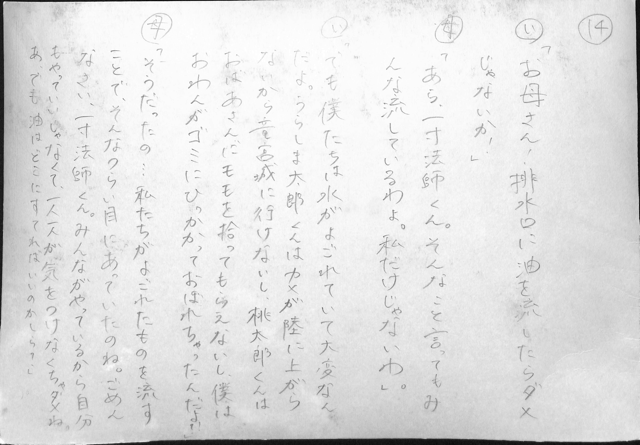 14
い「お母さん!排水口に油を流したらダメ
じゃないか!」
母「あら、一寸法師くん。そんなこと言ってもみ
んな流しているわよ。私だけじゃないわ」。
い「でも僕たちは水がよごれていて大変なん
だよ。うらしま太郎くんはカメが陸に上がら
ないから竜宮城に行けないし、桃太郎くんは
おばあさんにももを拾ってもらえないし、僕は
おわんがゴミにひっかかっておぼれちゃったんだよ!」
母「そうだったの…私たちがよごれたものを流す
ことで、そんなつらい目にあっていたのね。ごめん
なさい、一寸法師くん。みんながやっているから自分
もやっていいじゃなくて、一人一人が気をつけなくちゃダメね。
あ、でも油はどこにすてればいいのかしら?」